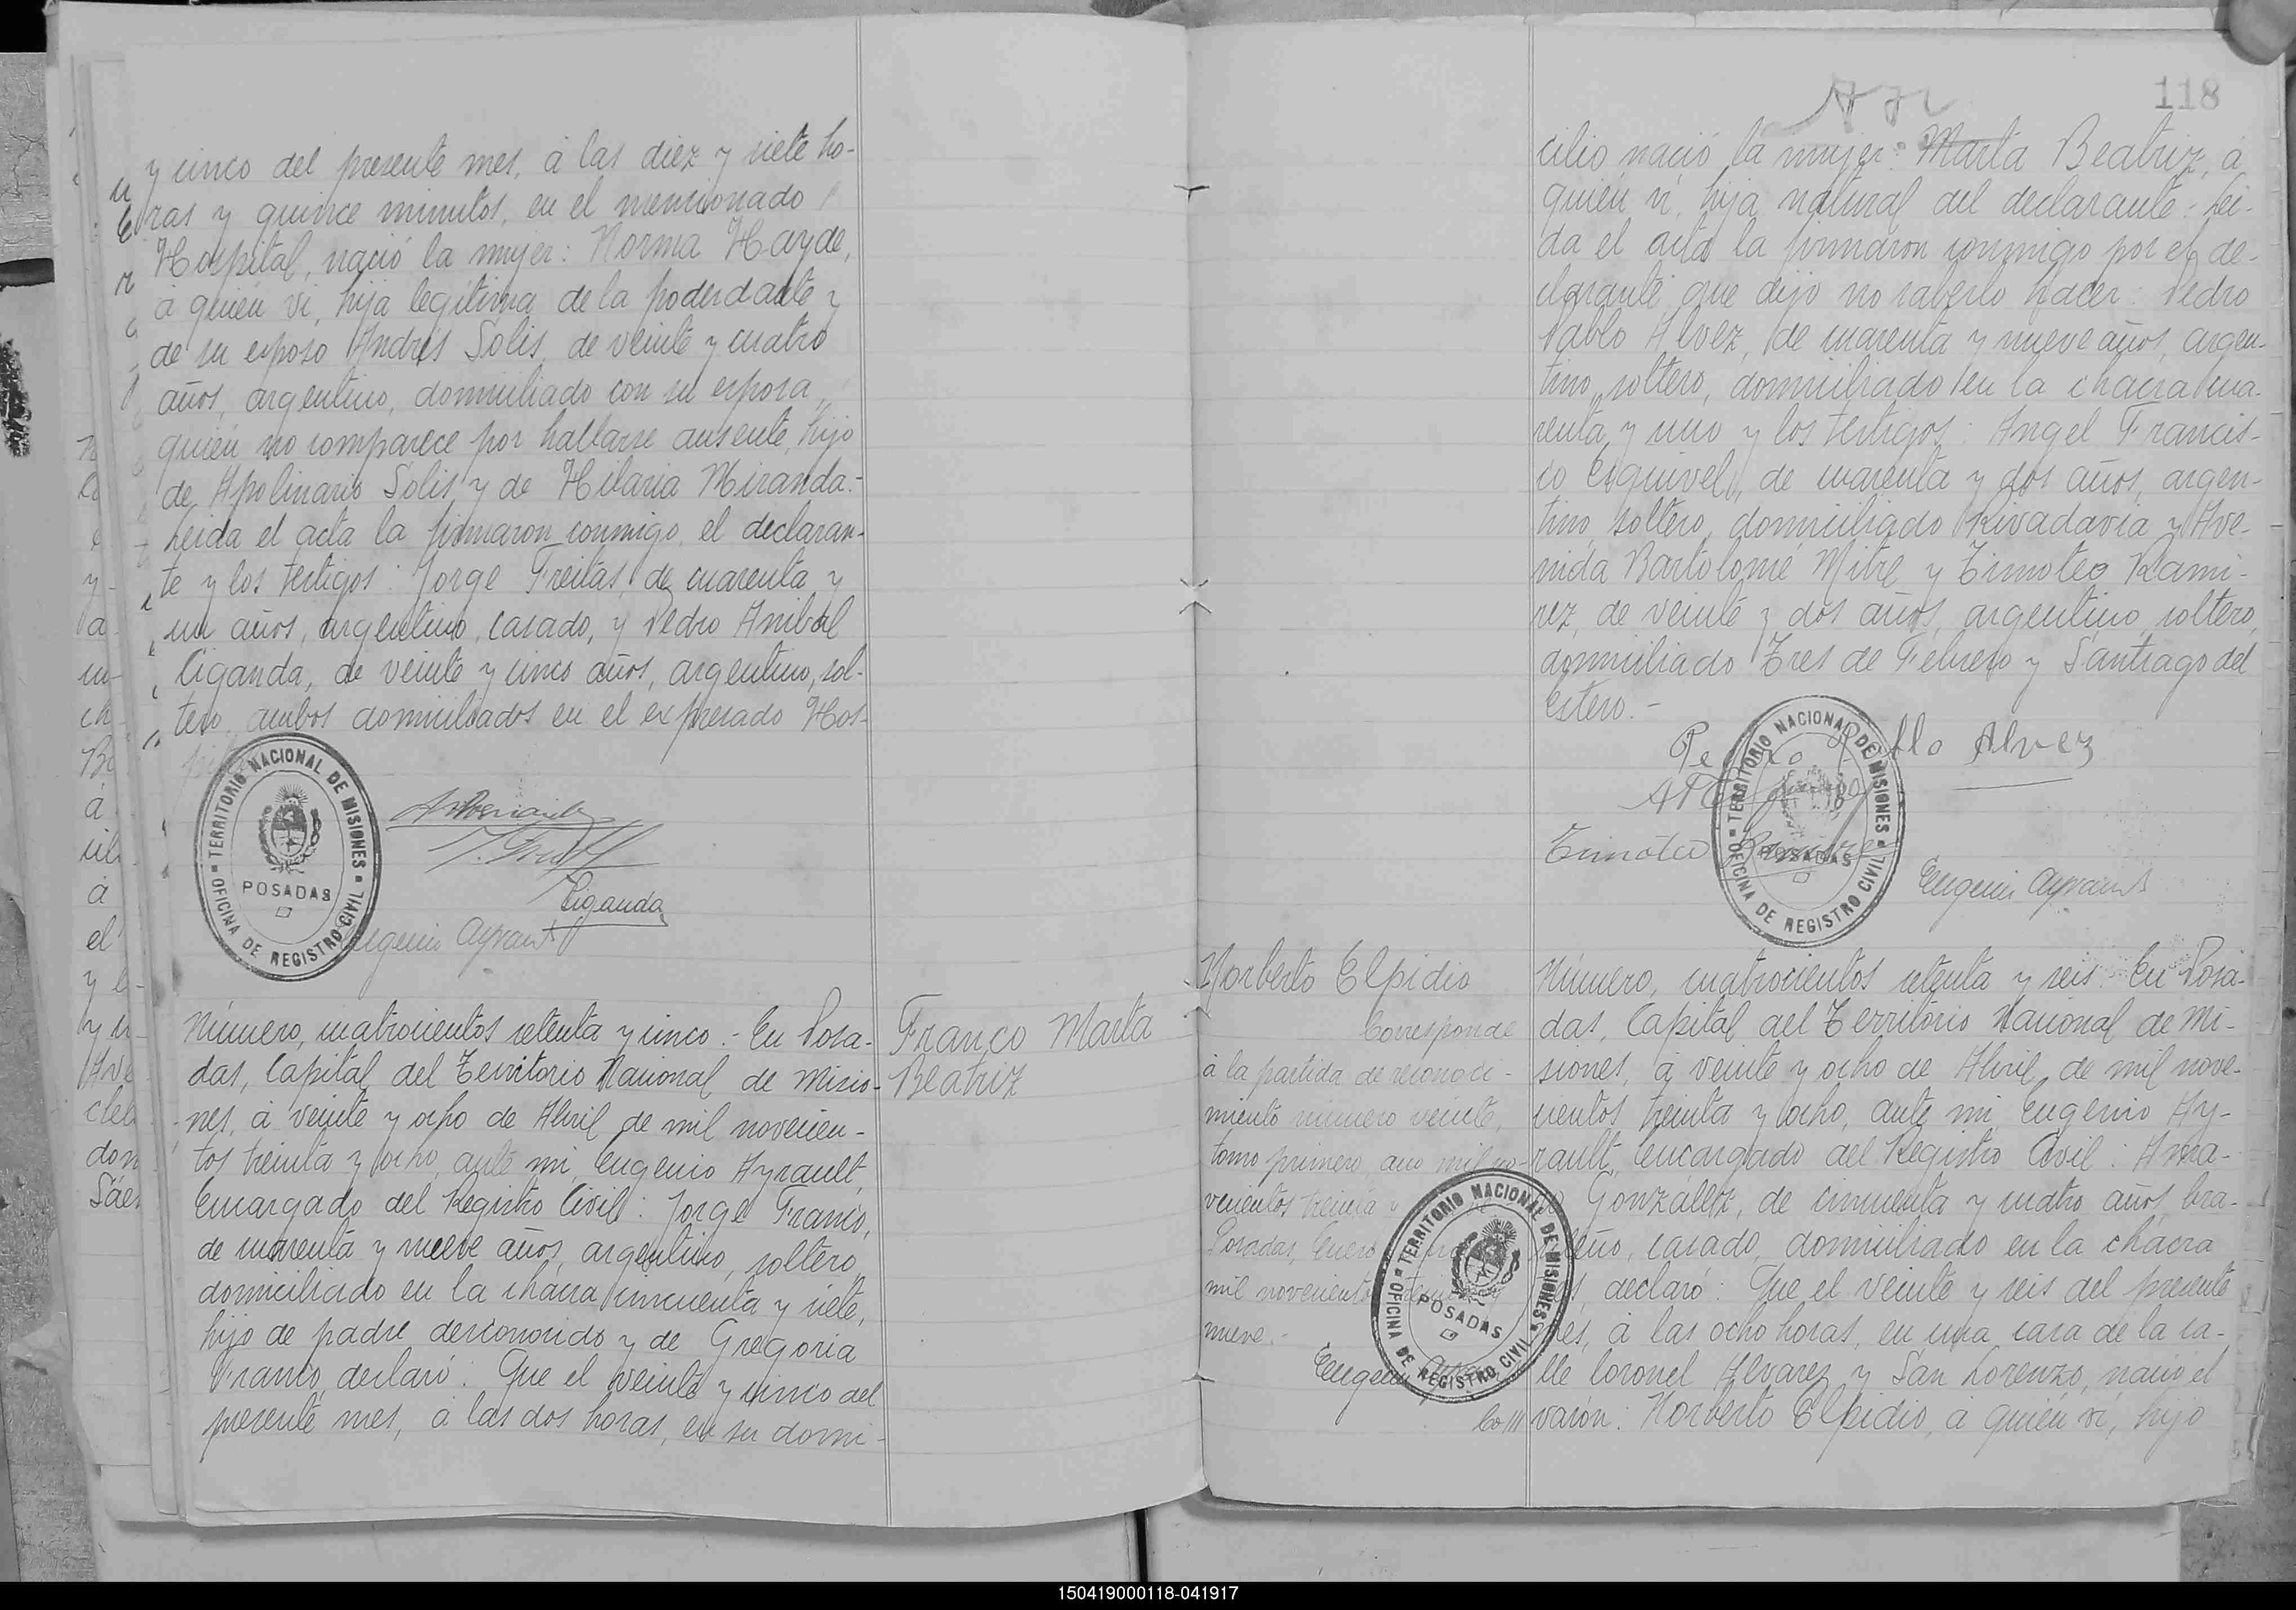 y cinco del presente mes, á las diez y siete ho-
ras y quince minutos, en el mencionado
Hospital, nació la mujer: Norma Hayde,
á quién vi, hija legítima de la poderdante y
de su esposo Andrés Solis, de veinte y cuatro
años, argentino, domiciliado con su esposa,
quién no comparece por hallarse ausente, hijo
de Apolinario Solis y de Hilaria Miranda.-
Leida el acta la firmaron conmigo, el declaran-
te y los testigos: Jorge Freitas, de cuarenta y
un años, argentino, casado, y Pedro Anibal
Ciganda, de veinte y cinco años, argentino, sol-
tero, ambos domiciliados en el expresado Hos-
TERRITORIO NACIONAL DE MISIONES
POSADAS
OFICINA DE REGISTRO CIVIL
Ciganda
Eugenio Ayrault
Número, cuatrocientos setenta y cinco.- En Posa-
das, Capital del Territorio Nacional de Misio-
nes, á veinte y ocho de Abril de mil novecien-
tos treinta y ocho, ante mi, Eugenio Ayrault,
Encargado del Registro Civil: Jorge Franco,
de cuarenta y nueve años, argentino, soltero,
domiciliado en la chacra cincuenta y siete,
hijo de padre desconocido y de Gregoria
Franco, declaró: Que el veinte y cinco del
presente mes, á las dos horas, en su domi-
Franco Marta
Beatriz
118
cilio nació la mujer: Marta Beatriz, á
quién vi, hija natural del declarante.- Lei-
da el acta la firmaron conmigo por el de-
clarante que dijo no saberlo hacer: Pedro
Pablo Alvez, de cuarenta y nueve años, argen-
tino, soltero, domiciliado en la chacra cua-
renta y uno y los testigos: Angel Francis-
co Esquivel, de cuarenta y dos años, argen-
tino, soltero, domiciliado Rivadavia y Ave-
nida Bartolomé Mitre y Timoteo Rami-
rez, de veinte y dos años, argentino, soltero,
domiciliado Tres de Febrero y Santiago del
Estero.-
Pedro Pablo Alvez
Timoteo Ramirez
TERRITORIO NACIONAL DE MISIONES
POSADAS
OFICINA DE REGISTRO CIVIL
Eugenio Ayrault
Norberto Elpidio
Corresponde
á la partida de reconoci-
miento número veinte,
tomo primero, año mil no-
vecientos treinta y
Posadas, Enero
mil novecientos treinta y
nueve.-
Eugenio
TERRITORIO NACIONAL DE MISIONES
POSADAS
OFICINA DE REGISTRO CIVIL
Número, cuatrocientos setenta y seis. En Posa-
das, Capital del Territorio Nacional de Mi-
siones, á veinte y ocho de Abril de mil nove-
cientos treinta y ocho, ante mi, Eugenio Ay-
rault, Encargado del Registro Civil: Ama-
González, de cincuenta y cuatro años, bra-
sileño, casado, domiciliado en la chacra
declaró: Que el veinte y seis del presente
mes, á las ocho horas, en una casa de la ca-
lle Coronel Alvarez y San Lorenzo, nació el
varón: Norberto Elpidio, á quién vi, hijo
150419000118-041917